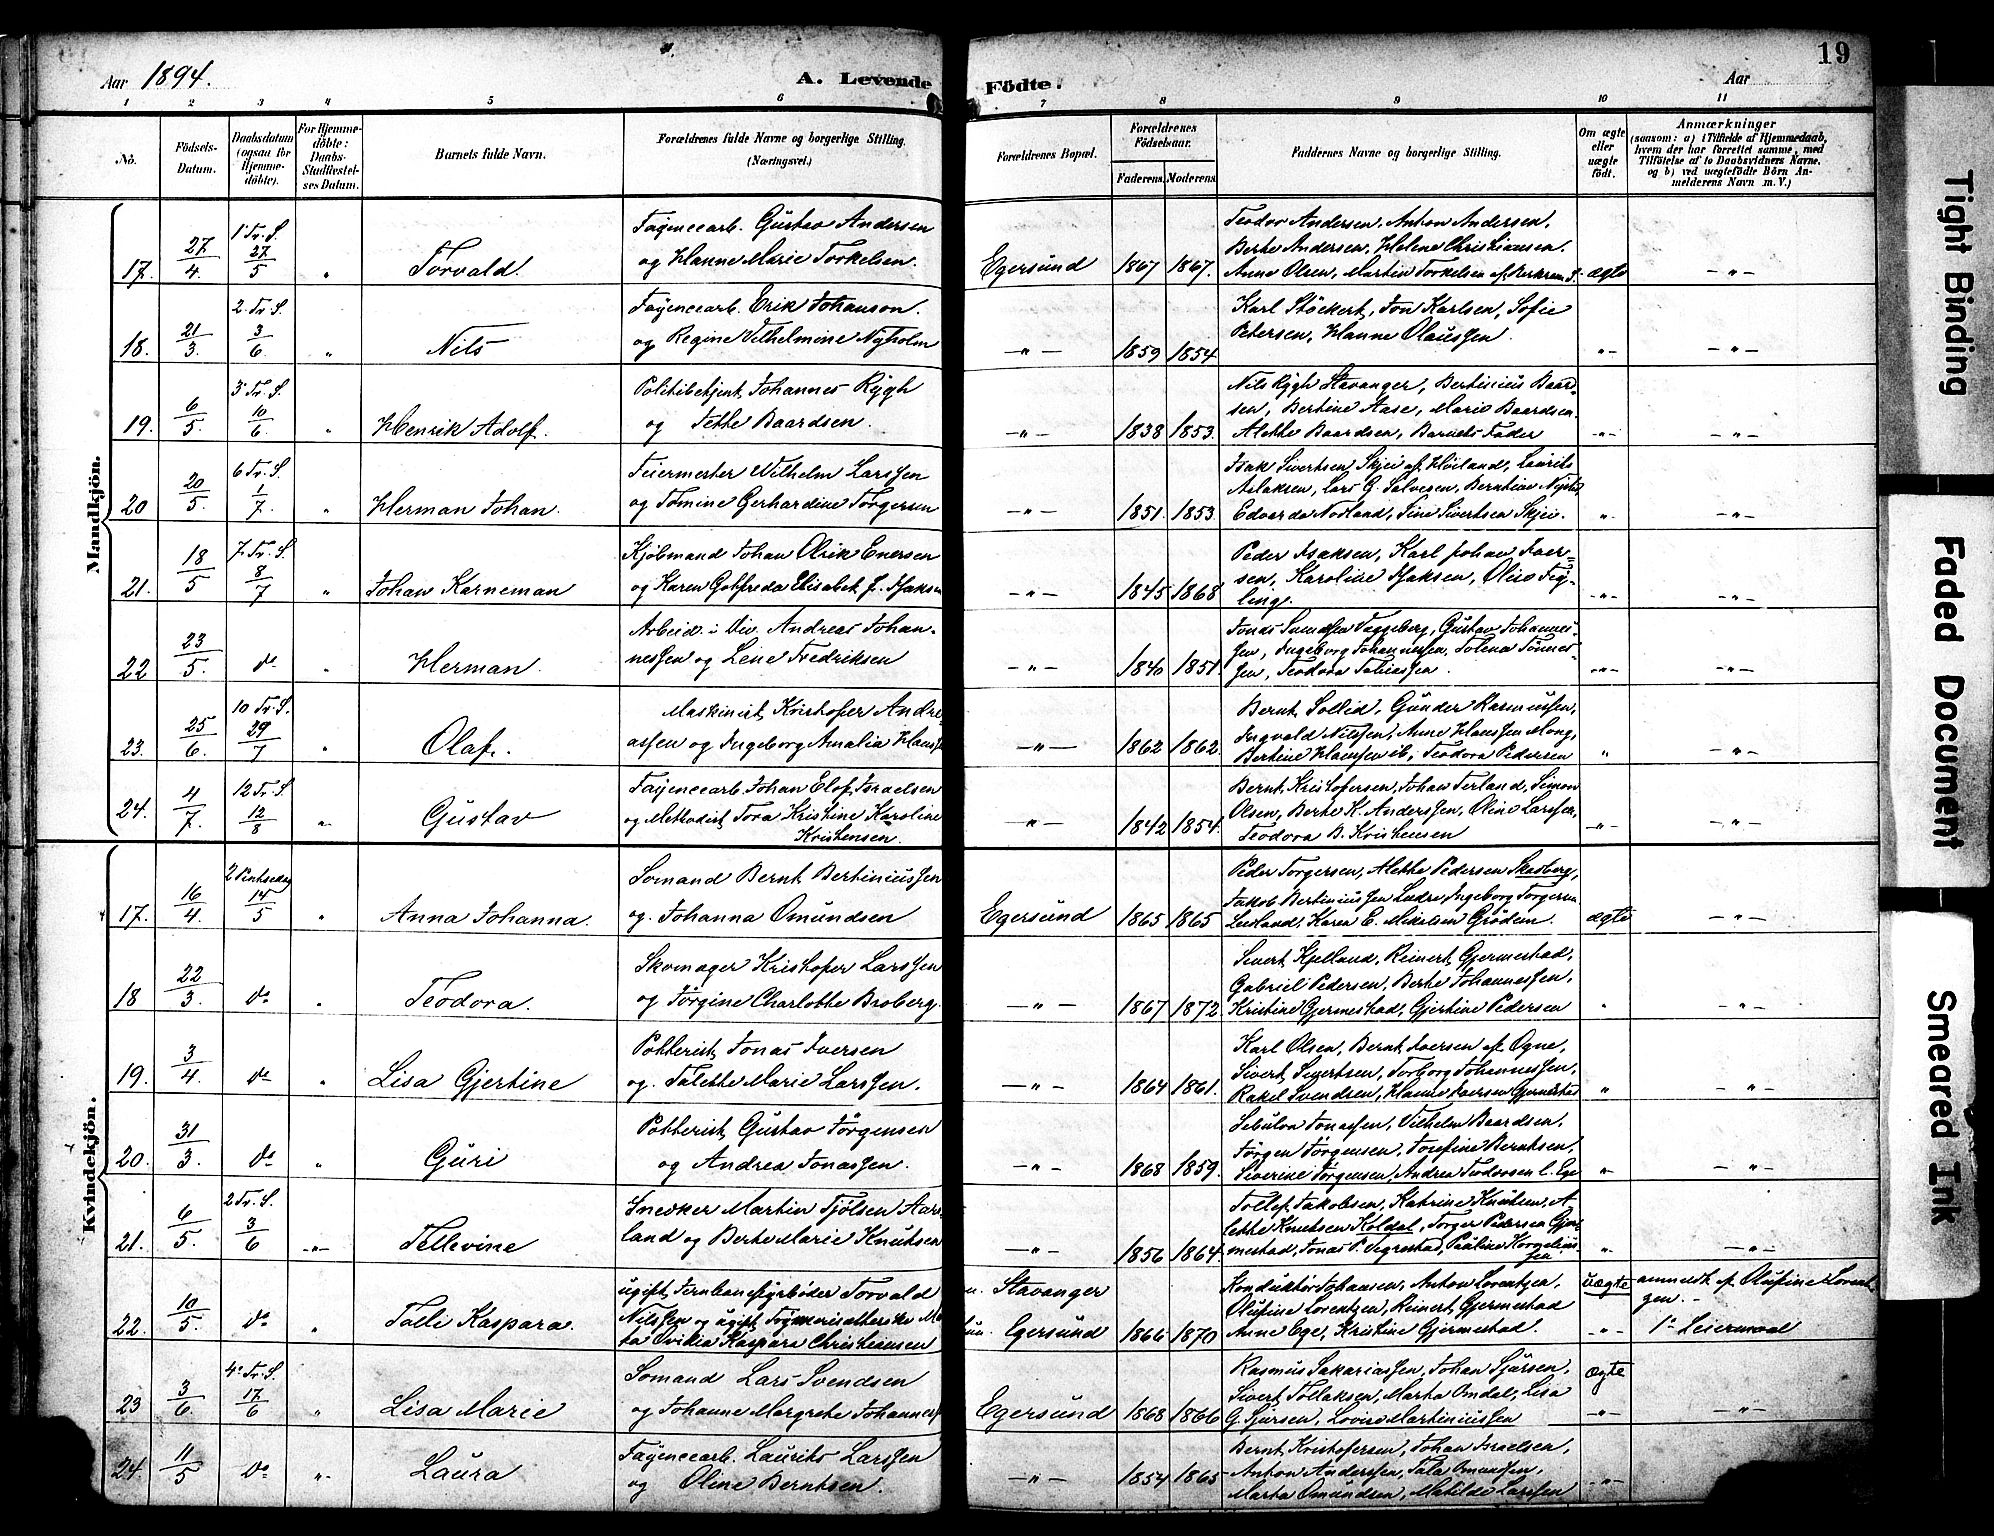 Aar 1894.
A. Levende
Fødte.
Aar
19
1 2 3 4 5 6 7 8 9 10 11
No.
Fødsels-
Datum.
Daabsdatum
(ogsaa for
Hjemme-
døbte).
For Hjemme-
døbte:
Daabs-
Stadfæstel-
ses Datum.
Barnets fulde Navn.
Forældrenes fulde Navne og borgerlige Stilling.
(Næringsvei.)
Forældrenes Bopæl.
Forældrenes
Fødselsaar.
Faderens. Moderens.
Faddernes Navne og borgerlige Stilling.
Om ægte
eller
uægte
født.
Anmærkninger
(saasom: a) i Tilfælde af Hjemmedaab,
hvem der har forrettet samme, med
Tilføielse af to Daabsvidners Navne.
og b) ved uægtefødte Børn An-
melderens Navn m. V.)
Mandkjøn.
17. 27/4 1 Tr. S. 27/5 " Torvald.
Fayencearb. Gustav Andersen
og Hanne Marie Torkelsen.
Egersund 1867 1867.
Teodor Andersen, Anton Andersen,
Berte Andersen, Helene Christiansen.
Anne Olsen, Martin Torkelsen af
ægte - " -
18. 21/3. 2 Tr. S. 3/6. " Nils
Fayencearb. Erik Johanson.
og Regine Vilhelmine Nyholm
- " - 1859 1854.
Karl Stöckert, Jon Karlsen, Sofie
Petersen, Hanne Olaussen.
- " - - " -
19. 6/5. 3 Tr. S. 10/6. " Henrik Adolf.
Politibetjent Johannes Rygh
og Jette Baardsen.
- " - 1838 1853.
Nils Rygh Stavanger, Bertinius Baard-
sen, Bertine Aase, Marie Baardsen.
Alette Baardsen, Barnets Fader
- " - - " -
20 20/5. 6 Tr. S. 1/7. " Herman Johan.
Feiermester Wilhelm Larssen
og Tomine Gerhardine Torgersen
- " - 1851. 1853.
Isak Sivertsen Skjei af Høiland, Laurits
Aslaksen, Lars G. Salvesen, Berntine
Edvarda Nodland, Sine Sivertsen Skjei.
" - " -
21. 18/5 7 Tr. S. 8/7 " Johan Karneman
Kjøbmand Johan Olrik Enersen
og Karen Gotfreda Elisabet f. Isaksen
- " - 1845 1868
Peder Isaksen, Karl Johan Iver-
sen, Karoline Isaksen, Olive Teg-
ling.
- " - - " -
22 23/5. do Herman.
Arbeid. i Div. Andreas Johan-
nessen og Lene Fredriksen
- " - 1840 1851.
Jonas Svendsen Vaggeberg, Gustav Johannes-
sen, Ingeborg Johannessen, Tolena Tønnes-
sen, Teodora Tobiassen.
- " - - " -
23. 25/6. 10 Tr. S. 29/7 " Olaf.
Maskinist Kristofer Andre-
assen og Ingeborg Amalia Hanssen
- " - 1862 1862.
Bernt Sollid, Gunder Rasmussen,
Ingvald Nilssen, Anne Hanssen Mong,
Bertine Hanssen ib., Teodora Pedersen
" - " -
24. 4/7. 12 Tr. S. 12/8 " Gustav
Fayencearb. Johan Elof Israelsen
og Metodist Tora Kristine Karoline
Kristensen.
- " - 1842 1854.
Bernt Kristofersen, Johan Terland, Simon
Olsen, Berte K. Anderssen, Oline Larssen,
Teodora B. Kristensen
- " - - " -
Kvindekjøn.
17. 16/4. 2 Pintsedag 14/5 " Anna Johanna.
Sømand Bernt Bertiniussen
og Johanna Omundsen
Egersund 1865 1865
Peder Torgersen, Alette Pedersen Skadberg,
Jakob Bertiniussen Ludre, Ingeborg Torgersen
Leidland, Karen E. Mikalsen Grødem.
ægte - " -
18 22/3. do " Teodora.
Skomager Kristofer Larssen
og Jørgine Charlotte Broberg.
- " - 1867 1872
Sivert Kjelland, Reinert Gjermestad,
Gabriel Pedersen, Berte Johannessen,
Kristine Gjermestad, Gjertine Pedersen
" - " -
19. 3/4. do " Lisa Gjertine
Potterist Jonas Iversen
og Talette Marie Larssen.
- " - 1864 1861.
Karl Olsen, Bernt Iversen af Ogne,
Sivert Sivertsen, Torborg Johannessen,
Rakel Svendsen, Hanne Iversen Gjermestad
" - " -
20. 31/3. do " Guri
Potterist Gustav Jørgensen
og Andrea Jonassen.
- " - 1868 1859.
Sebulon Jonassen, Vilhelm Baardsen,
Jørgen Jørgensen, Josefine Berntsen,
Siverine Jørgensen, Andrea Teodorsen l. Ege
" - " -
21. 6/5. 2 Tr. S. 3/6 - " - Tellevine
Snedker Martin Tjølsen Aars-
land og Berte Marie Knutsen
- " - 1856 1864.
Tollef Jakobsen, Katrine Knutsen, A-
lette Knutsen Koldal, Torger Pedersen Gjer-
mestad, Jonas P. Tegrestad, Pauline Kornelius-
sen
" - " -
22. 10/5. do " Talli Kaspara.
ugift Jernbanefyrbøder Torvald
Nilssen og ugift Syerske Mar-
ta Ovidia Kaspara Christiansen
Stavanger
Egersund 1866 1870
Konduktør Johansen, Anton Lorentzen,
Olufine Lorentzen, Reinert Gjermestad
Anne Ege, Kristine Gjermestad.
uægte
- " -
anmeldt af Olufine Lorent-
zen. -
1° Leiermaal
23 3/6. 4 Tr. S. 17/6 " Lisa Marie
Sømand Lars Svendsen
og Johanne Margrete Johannes
Egersund 1868 1866
Rasmus Sakariassen, Johan Sjursen,
Sivert Tollaksen, Marta Omdal, Lisa
G. Sjursen, Lovise Martiniussen
ægte
- " - - " -
24. 11/5 do " Laura
Fayencearb. Laurits Larssen
og Oline Berntsen.
- " - 1854 1865
Bernt Kristofersen, Johan Israelsen,
Anton Anderssen, Tala Omundsen,
Marta Omundsen, Matilde Larssen
- " -
Tight Binding
Faded Document
Smeared Ink